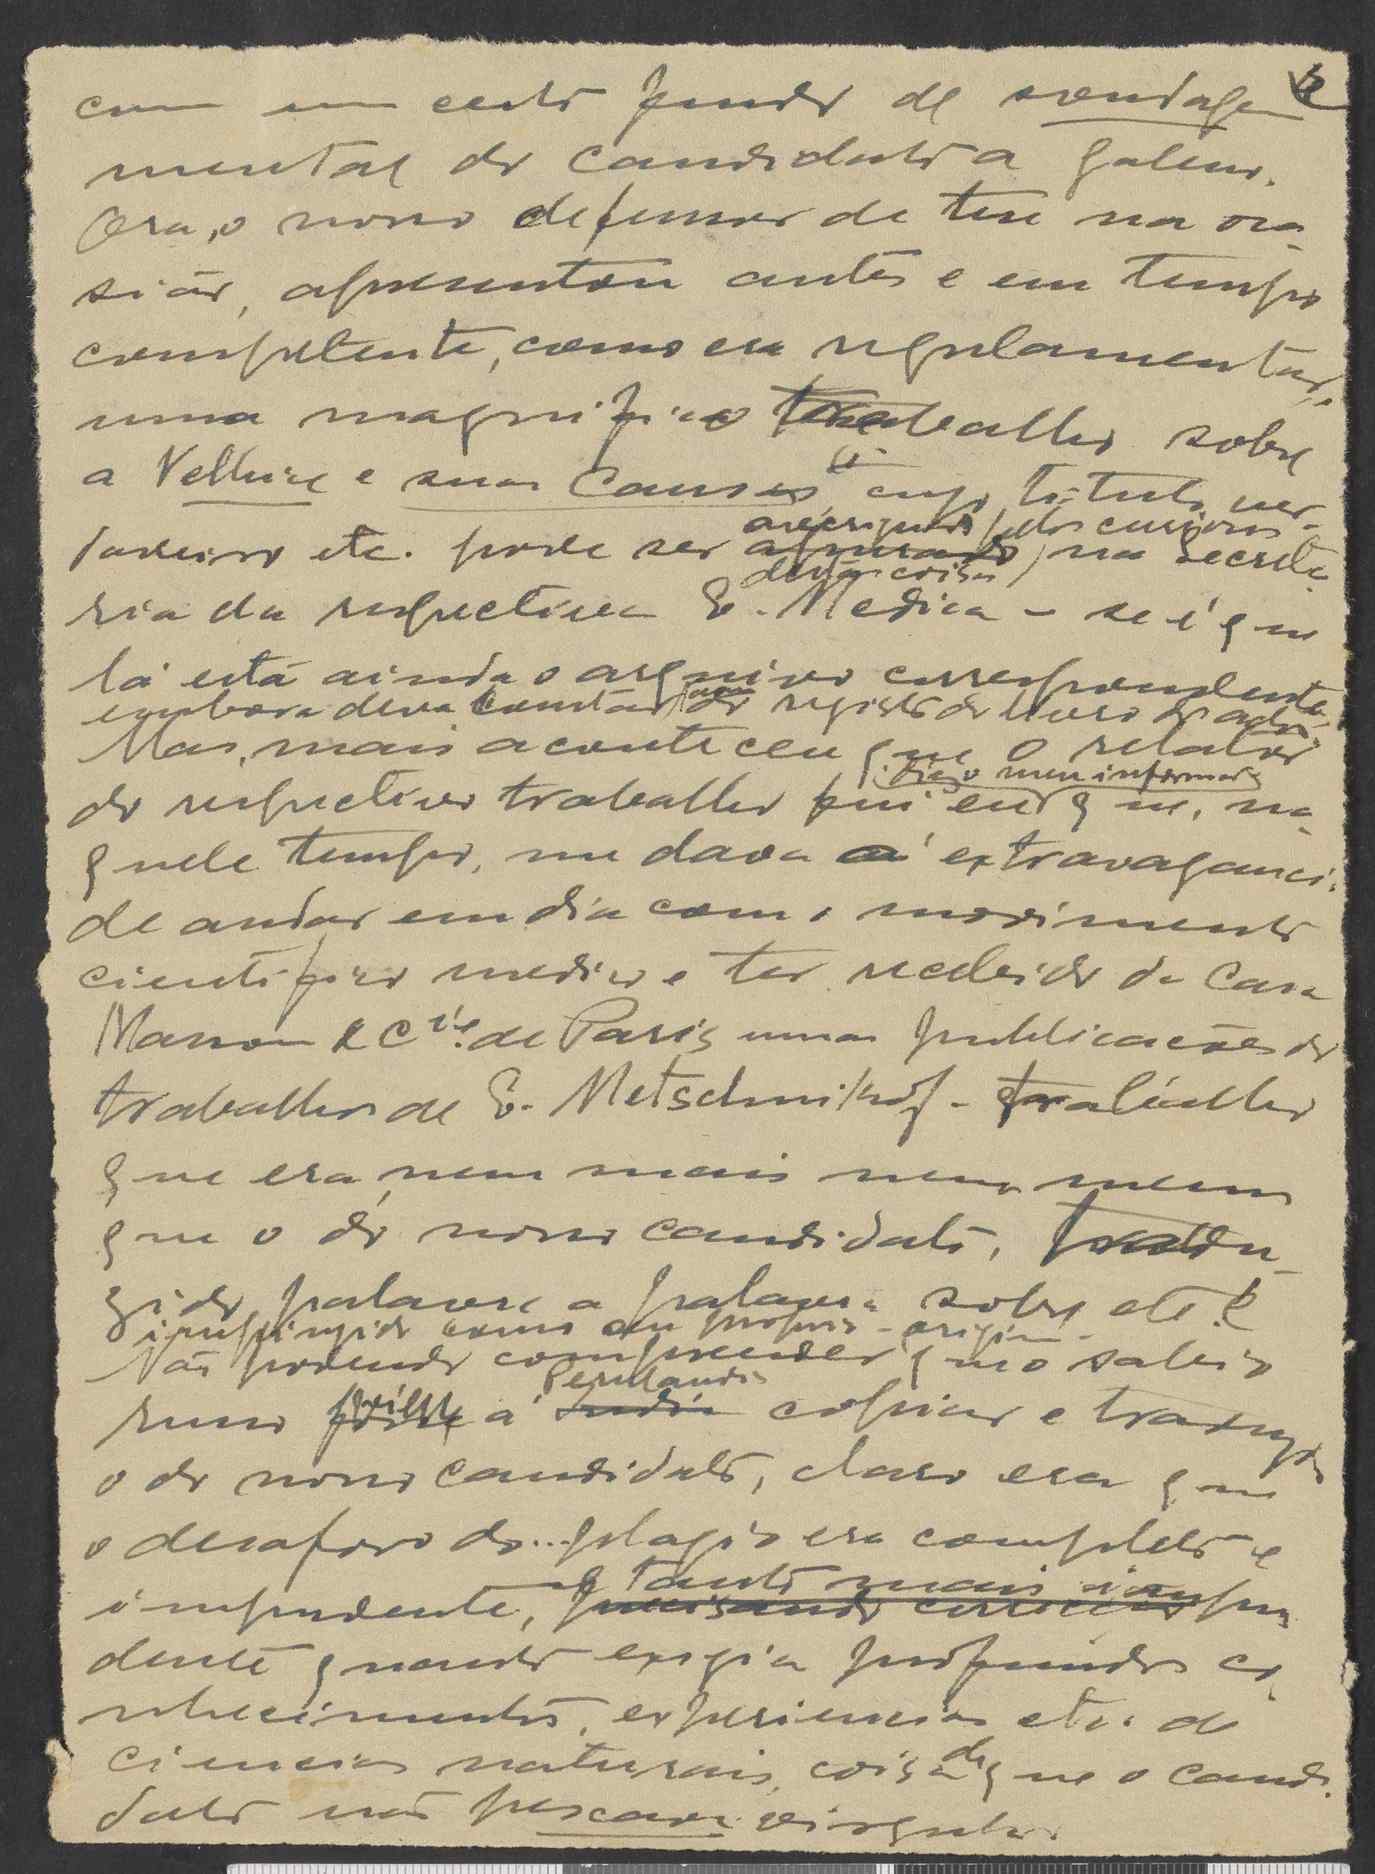 com um certo fundo de sondagem
mental do candidato a galeno.
Ora, o nosso defensor de tese na oca-
sião, apresentou antes e em tempo
competente, como era regulamentar,
uma magnifico trabalho sobre
a Velhice e suas Causas, cujo titulo ver-
averiguado pelos curiosos
dadeiro etc. pode ser apurado, na Secreta-
destas coisas
ria da respectiva E. Medica - se é que
lá está ainda o arquivo correspondente
embora deva constar do registo do livro de actas.
Mas, mais aconteceu que o relator
(diz o meu informador)
do respectivo trabalho fui eu que, na-
quele tempo, me dava á extravagancia
de andar em dia com o movimento
cientifico medico e ter recebido da Casa
Masson & Cie. de Paris umas publicações de
trabalhos de E. Metschnikof - trabalho
que era, nem mais nem menos
que o do nosso candidato, tradu-
zido palavra a palavra sobre etc.
impingido como seu proprio - original
Não podendo compreender que o sabio
russo fosse á India copiar e
o do nosso candidato, claro era que
o desaforo do... plagio era completo e
e tanto mais impu-
impudente, precisando
dente quando exigia profundos co-
nhecimentos, experiencias etc. de
ciencias naturais, coisa de que o candi-
dato não pescava virgula.